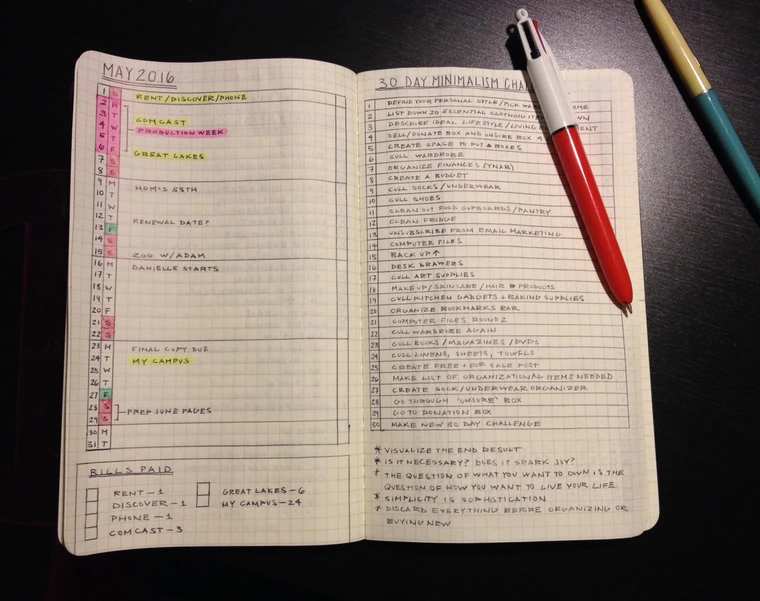 MAY 2016
1 S RENT/DISCOVER/PHONE
2 M
3 T COMCAST
4 W PRODUCTION WEEK
5 T
6 F GREAT LAKES
7 S
8 S
9 M MOM'S 55TH
10 T
11 W
12 T RENEWAL DATE?
13 F
14 S
15 S ZOO W/ADAM
16 M DANIELLE STARTS
17 T
18 W
19 T
20 F
21 S
22 S
23 M FINAL COPY DUE
24 T MY CAMPUS
25 W
26 T
27 F
28 S PREP JUNE PAGES
29 S
30 M
31 T
BILLS PAID
RENT - 1
DISCOVER - 1
PHONE - 1
COMCAST - 3
GREAT LAKES - 6
MY CAMPUS - 24
30 DAY MINIMALISM
1 DEFINE YOUR PERSONAL STYLE/PICK
2 LIST DOWN 20 ESSENTIAL CLOTHING
3 DESCRIBE IDEAL LIFESTYLE/LIVING
4 SELL/DONATE BOX AND UNSURE BOX
5 CREATE SPACE TO PUT BOXES
6 CULL WARDROBE
7 ORGANIZE FINANCES (YNAB)
8 CREATE A BUDGET
9 CULL SOCKS/UNDERWEAR
10 CULL SHOES
11 CLEAN OUT FOOD CUPBOARDS/PANTRY
12 CLEAN FRIDGE
13 UNSUBSCRIBE FROM EMAIL MARKETING
14 COMPUTER FILES
15 BACK UP↑
16 DESK DRAWERS
17 CULL ART SUPPLIES
18 MAKEUP/SKINCARE/HAIR PRODUCTS
19 CULL KITCHEN GADGETS + BAKING SUPPLIES
20 ORGANIZE BOOKMARKS BAR
21 COMPUTER FILES ROUND 2
22 CULL WARDROBE AGAIN
23 CULL BOOKS/MAGAZINES/DVDS
24 CULL LINENS, SHEETS, TOWELS
25 CREATE FREE + FOR SALE POST
26 MAKE LIST OF ORGANIZATIONAL ITEMS NEEDED
27 CREATE SOCK/UNDERWEAR ORGANIZER
28 GO THROUGH 'UNSURE' BOX
29 GO TO DONATION BOX
30 MAKE NEW 30 DAY CHALLENGE
* VISUALIZE THE END RESULT
* IS IT NECESSARY? DOES IT SPARK JOY?
* THE QUESTION OF WHAT YOU WANT TO OWN IS THE
QUESTION OF HOW YOU WANT TO LIVE YOUR LIFE
* SIMPLICITY IS SOPHISTICATION
* DISCARD EVERYTHING BEFORE ORGANIZING OR
BUYING NEW